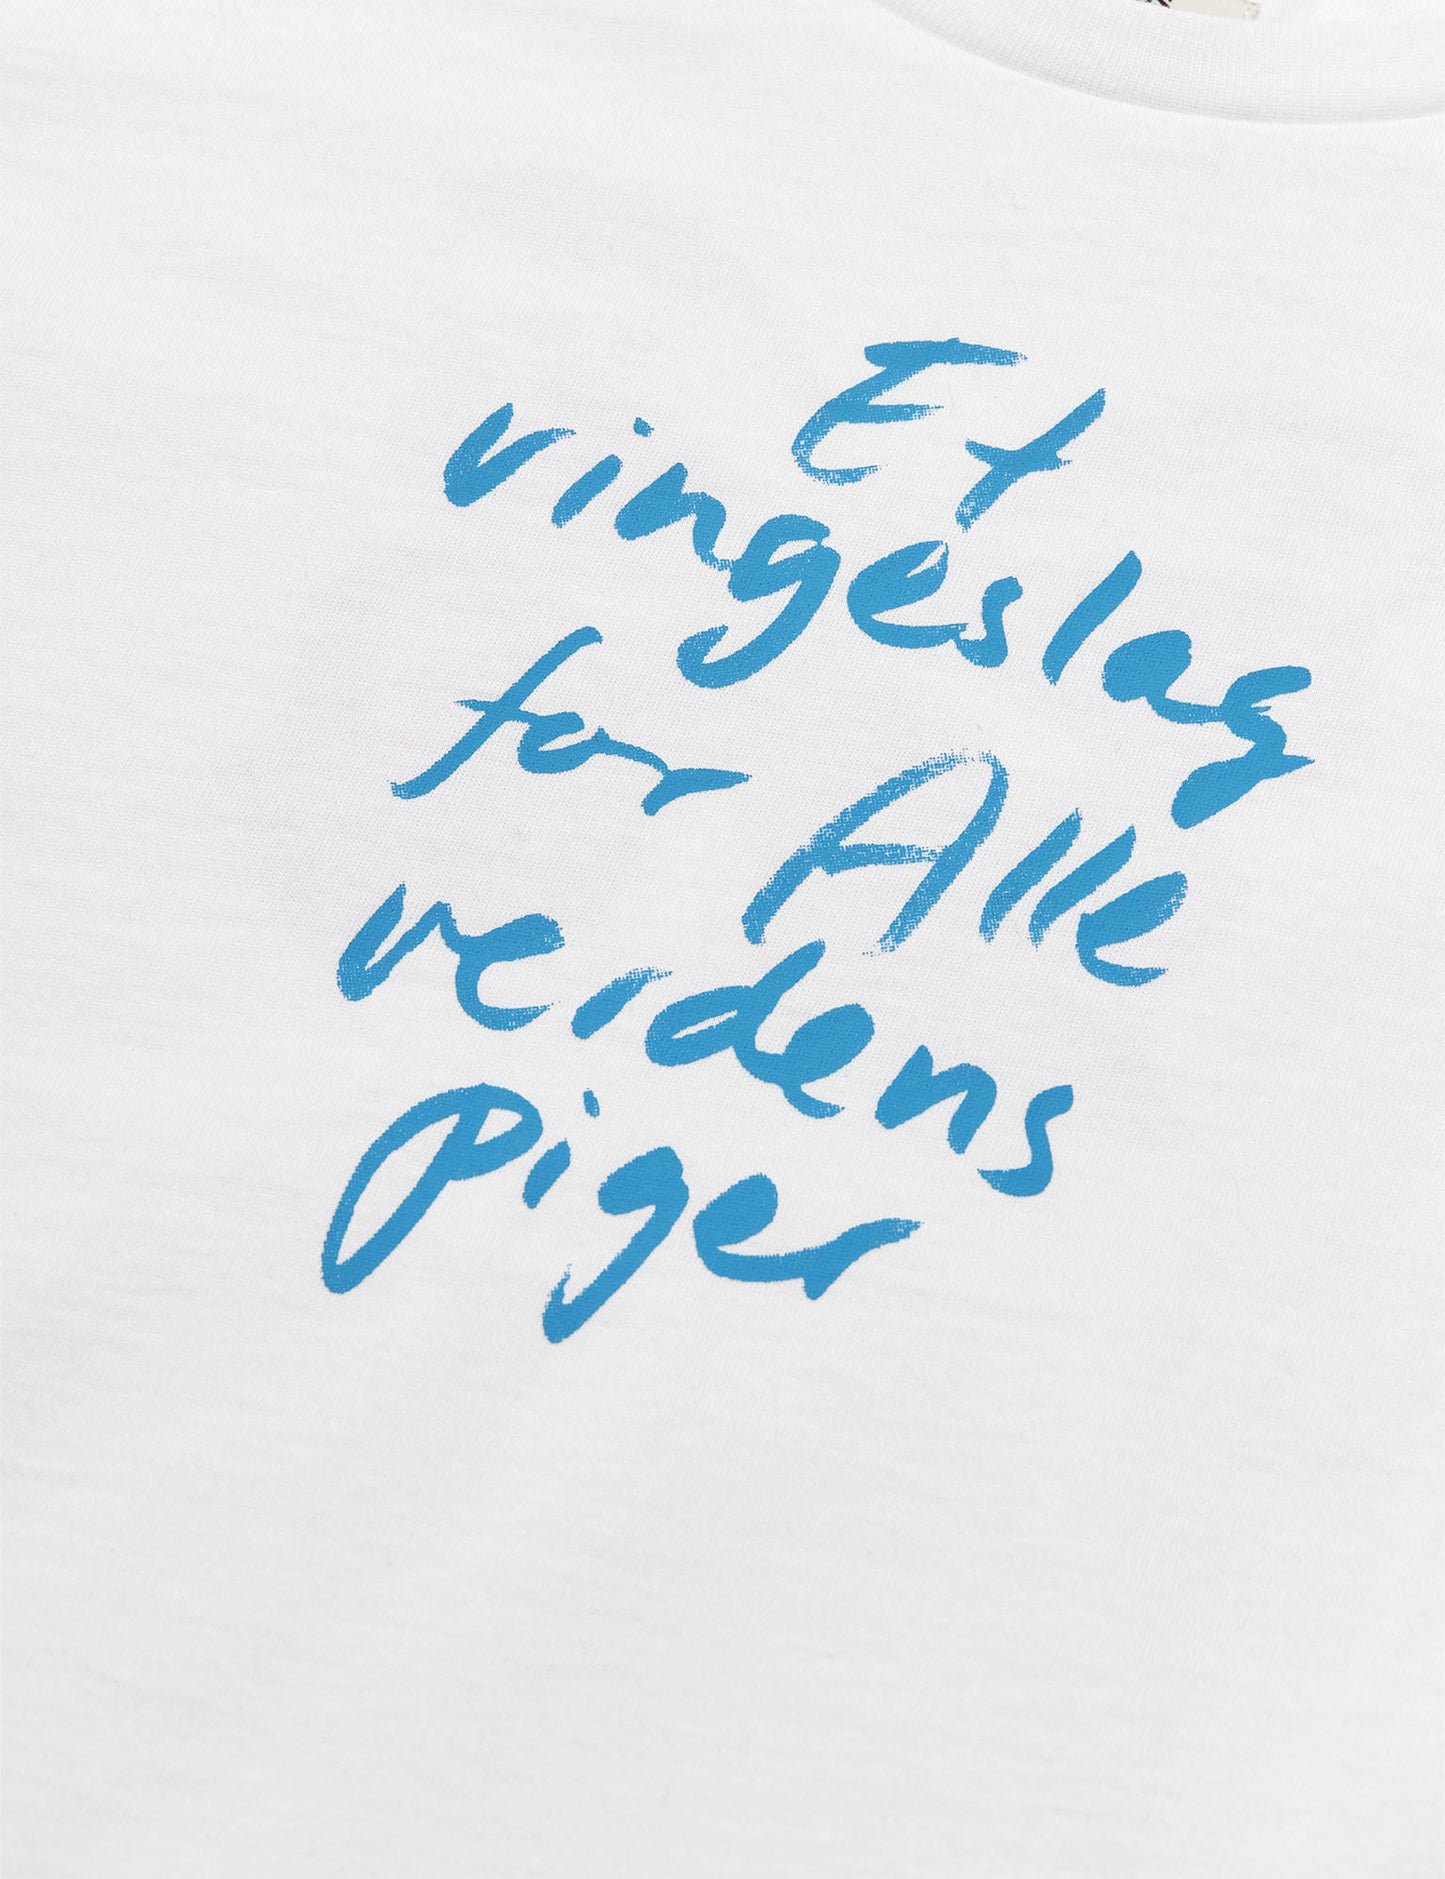 Et
vingeslag
for Alle
verdens
piger